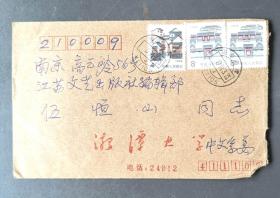 210009
南京高云岭56号
江苏文艺出版社编辑部
伍恒山 同志
湘潭大学中文系
电话:24812
41110